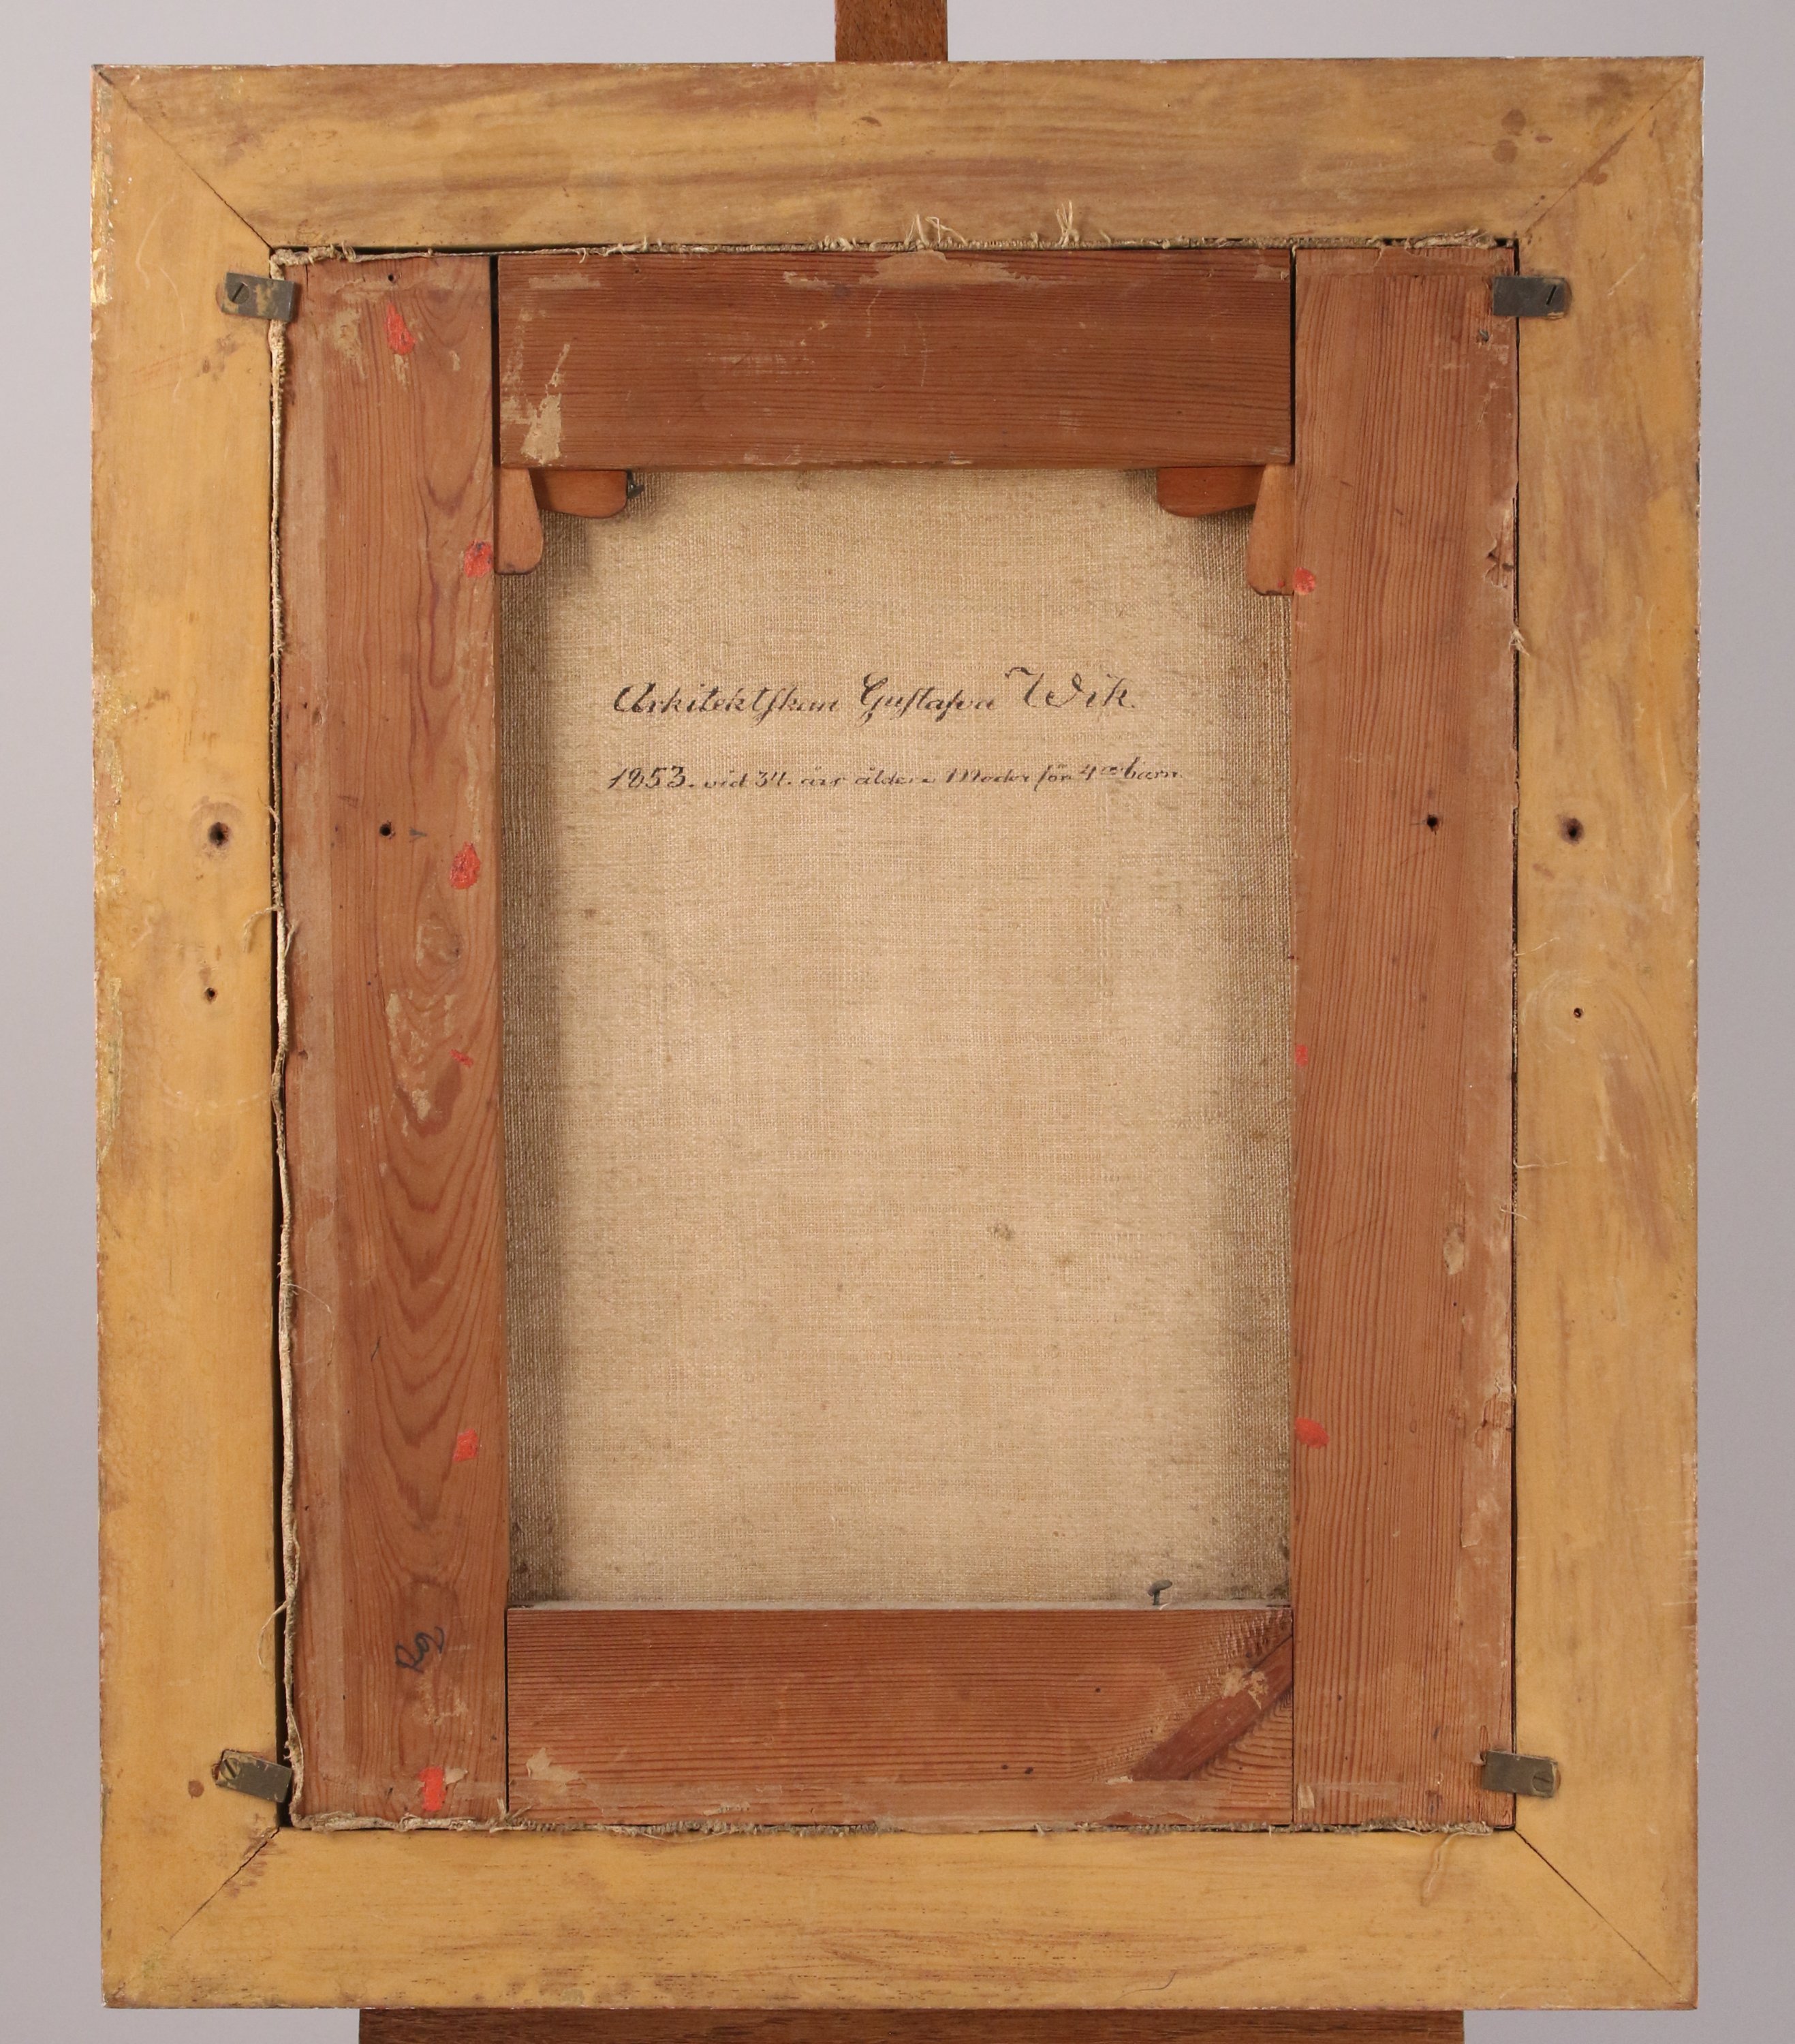 Arkitektskan Gustafva Wik.
1853. vid 34. års ålder. Moder för 4ra barn.
Rg